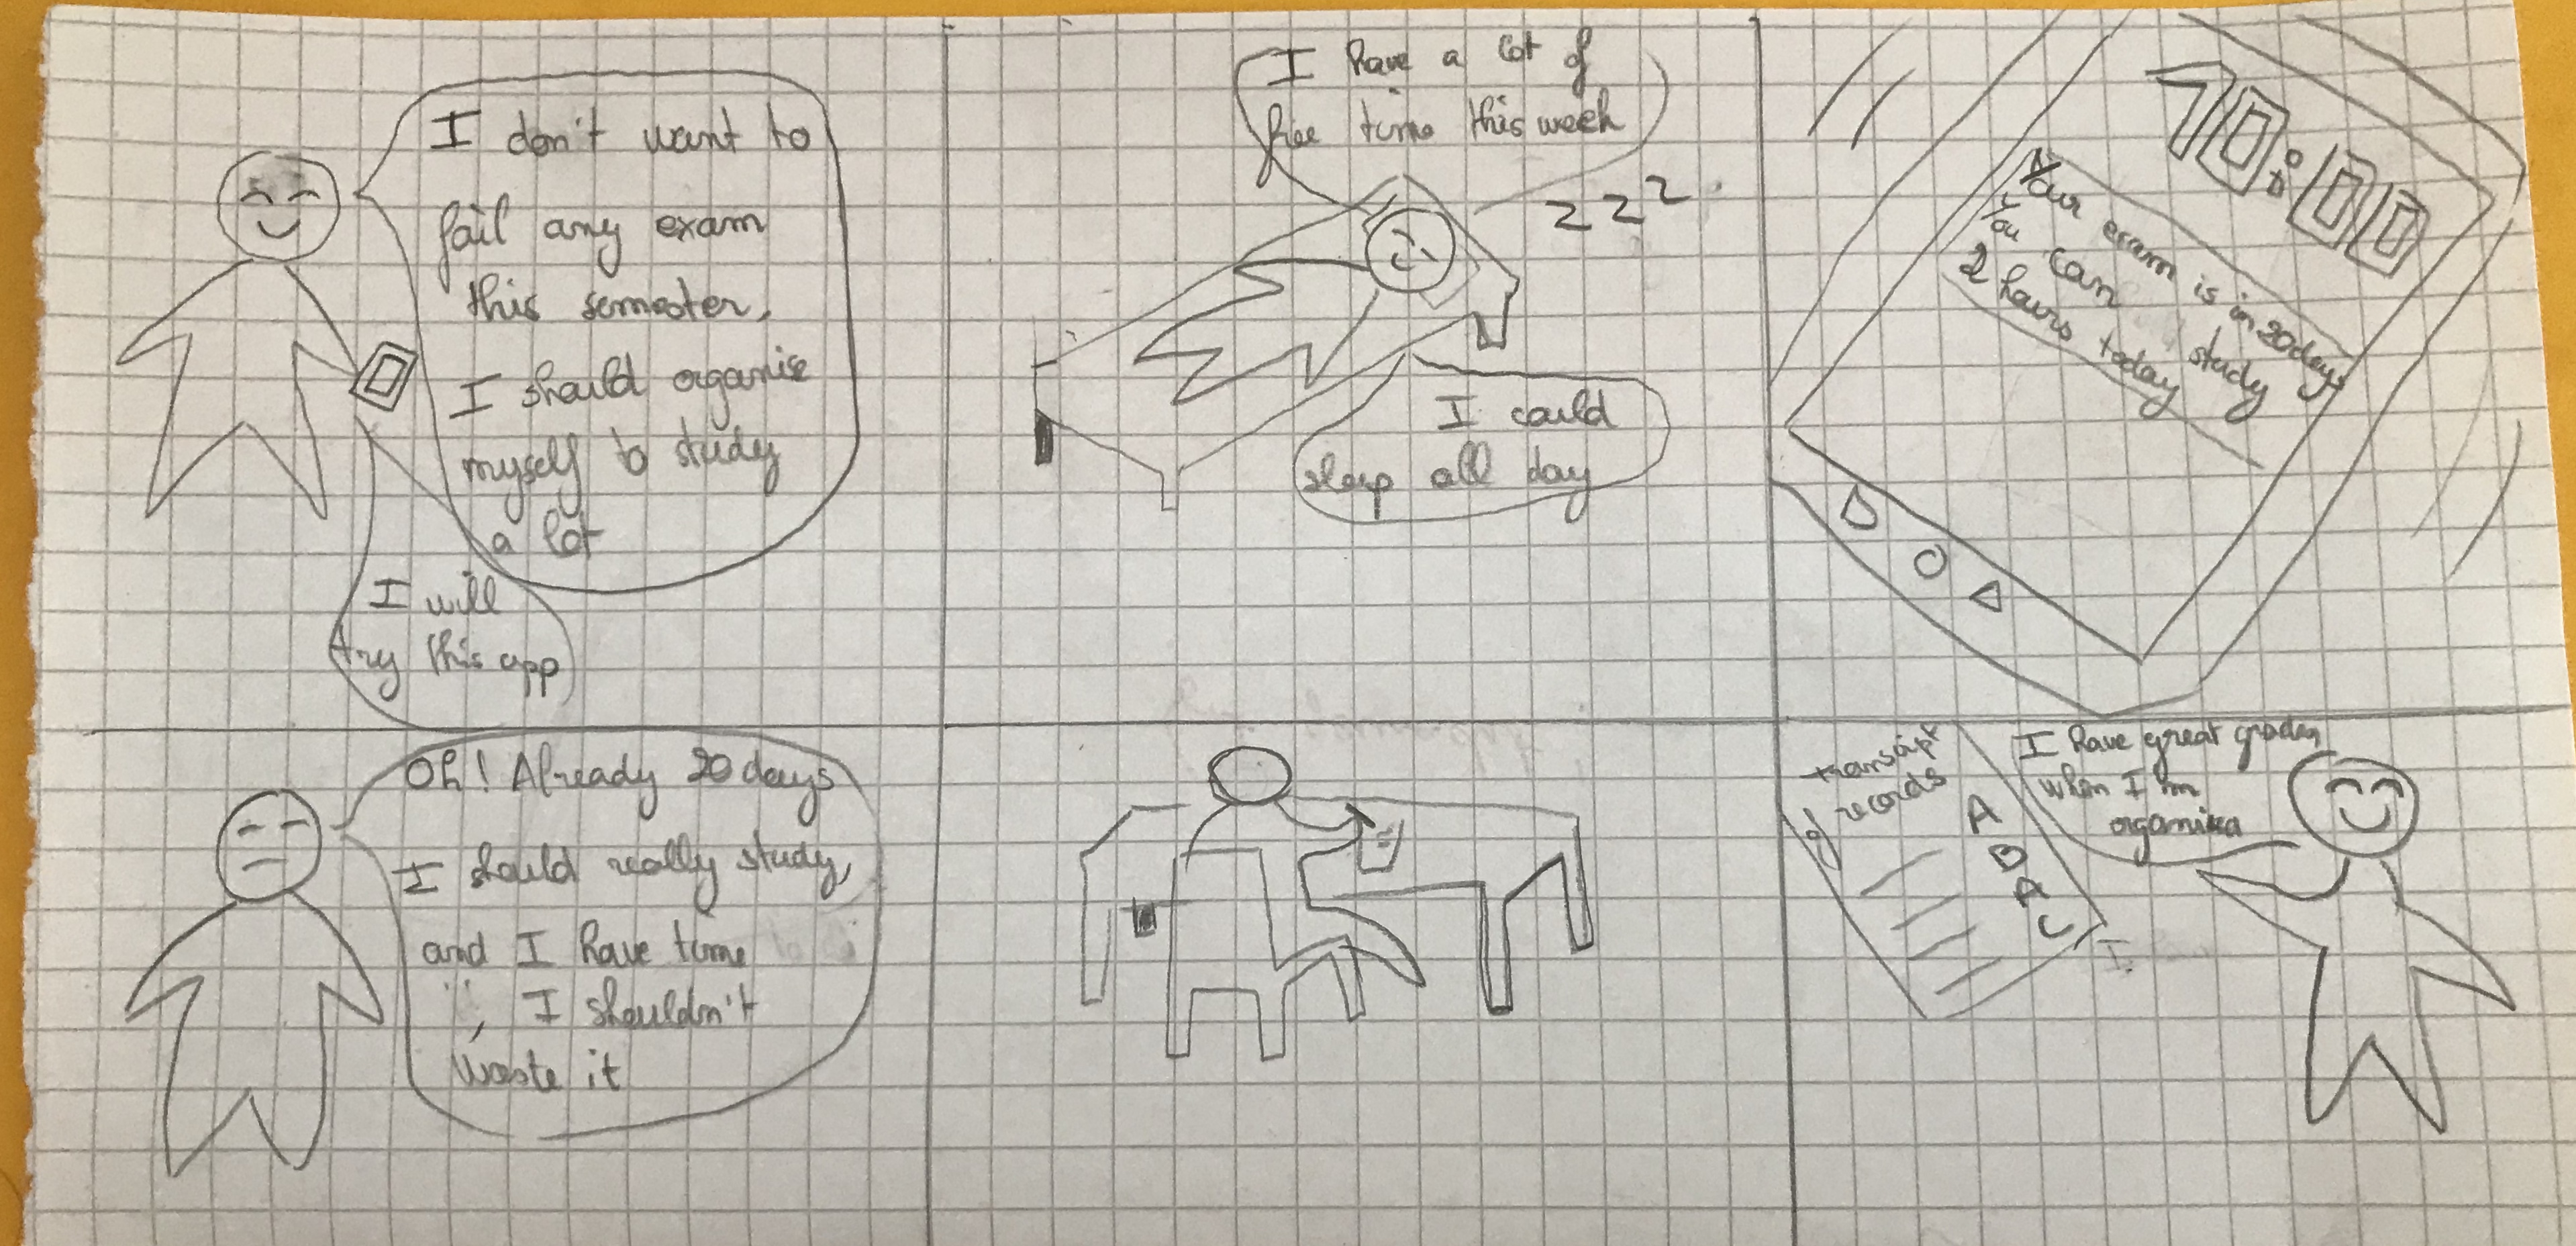 I don't want to
fail any exam
this semester,
I should organise
myself to study
a lot
I will
try this app
I have a lot of
free time this week
z z z
I could
sleep all day
10:00
Your exam is in 20 days
You can study
2 hours today
Oh! Already 20 days
I should really study,
and I have time
, I shouldn't
waste it
transcript
of records
A
B
A
C
I have great grades
when I'm